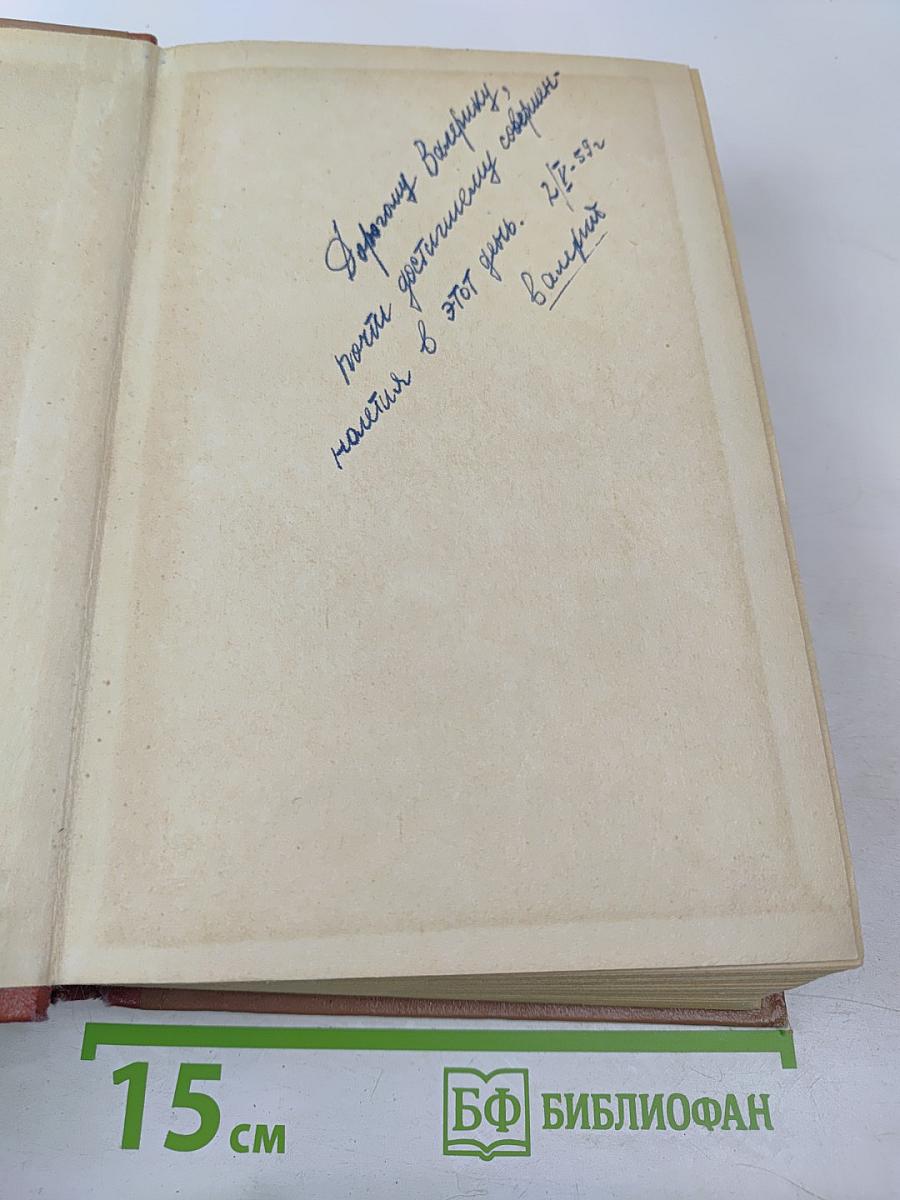 Дорогому Валерику,
почти достигшему совершен-
налетия в этот день. 2/V-59г
Валерий
15 см
БФ БИБЛИОФАН